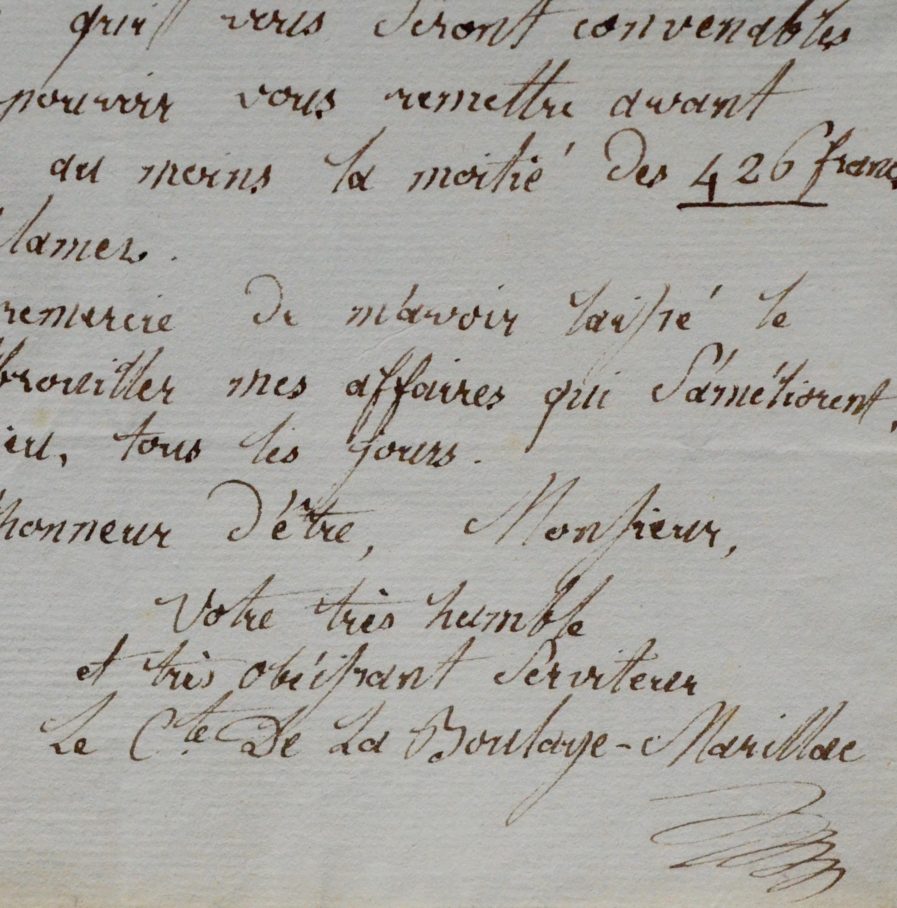 qui vous seront convenables
pouvoir vous remettre avant
au moins la moitié des 426 francs
clamez.
remercie de m'avoir laissé le
brouiller mes affaires qui s'améliorent,
ieu, tous les jours.
l'honneur d'être, Monsieur,
Votre très humble
et très obéissant Serviteur
Le Cte De La Boulaye-Marillac